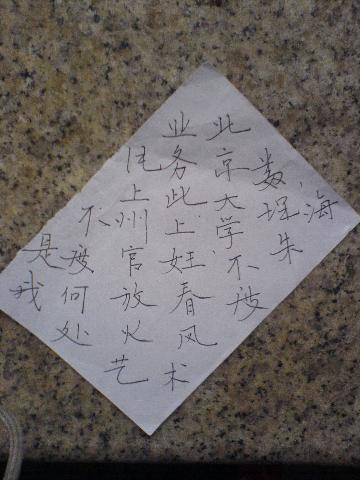 海
数埕朱
北京大学不
业务此上妊春风术
上州官放火艺
不何处
是我